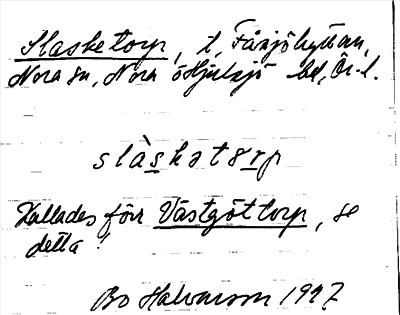 Slasketorp, t, Fåsjöhyttan,
Nora sn, Nora o Hjulsjö bd, Ör. l.
slàskətɷrp
Kallades förr Västgöttorp, se
detta!
Bo Halvarsson 1927